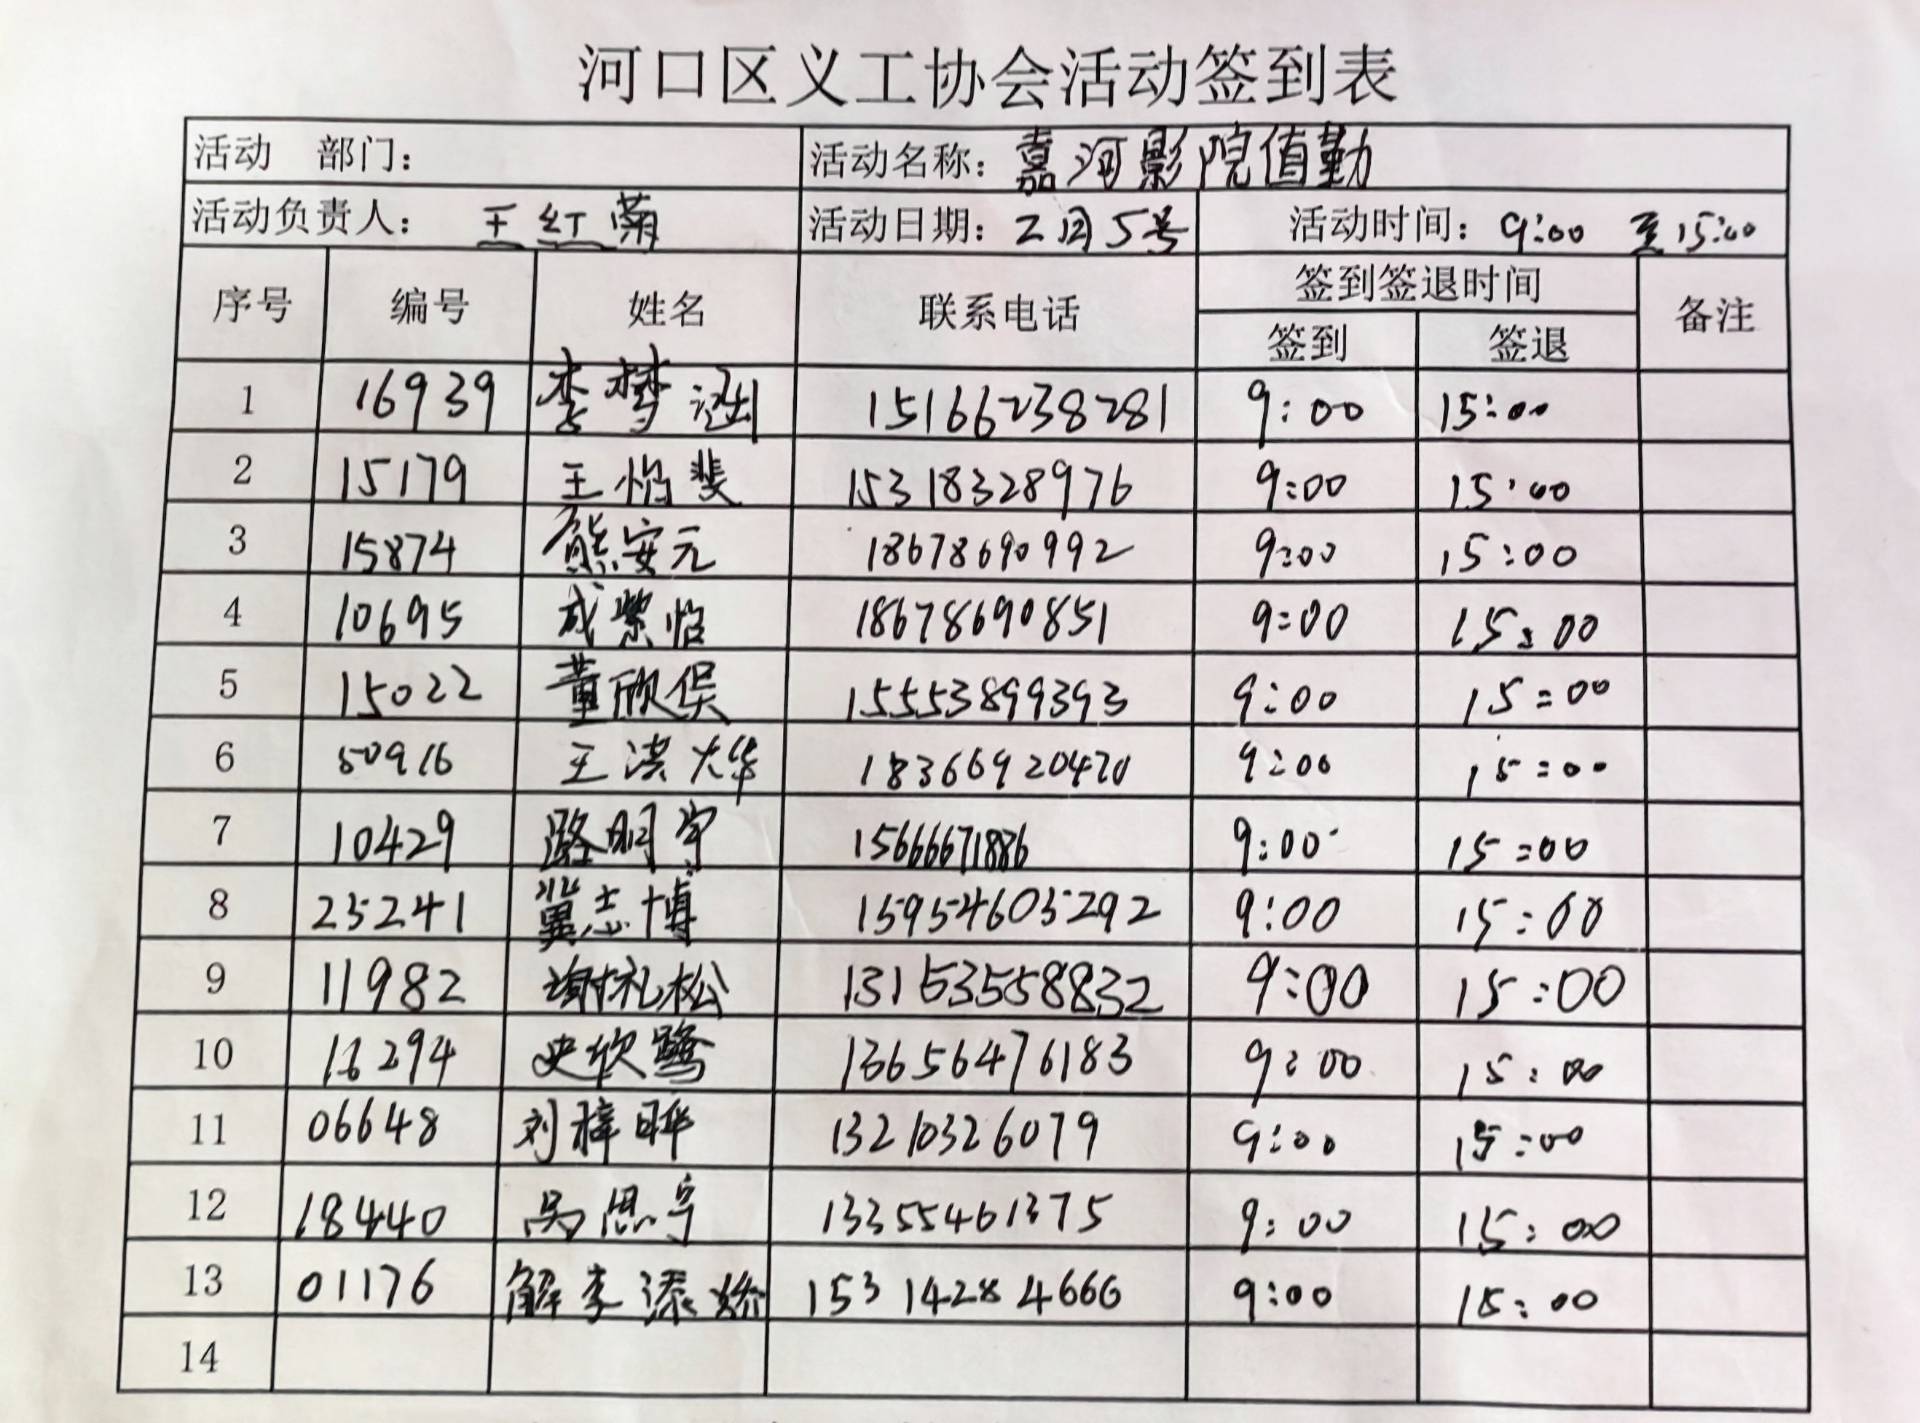 河口区义工协会活动签到表
活动 部门： 活动名称：嘉河影院值勤
活动负责人：王红菊 活动日期：2月5号 活动时间：9:00 至15:00
序号 编号 姓名 联系电话 签到签退时间 备注
签到 签退
1 16939 李梦涵 15166238281 9:00 15:00
2 15179 王怡斐 15318328976 9:00 15:00
3 15874 熊安元 18678690992 9:00 15:00
4 10695 成紫怡 18678690851 9:00 15:00
5 15022 董欣俣 15553899393 9:00 15:00
6 50916 王洪烨 18366920470 9:00 15:00
7 10429 路明宇 15666671886 9:00 15:00
8 25241 冀志博 15954605292 9:00 15:00
9 11982 谢礼松 13153558832 9:00 15:00
10 16294 史欣鹭 13656476183 9:00 15:00
11 06648 刘梓晔 13210326079 9:00 15:00
12 18440 思宇 13355461375 9:00 15:00
13 01176 解李添娇 15314284666 9:00 15:00
14